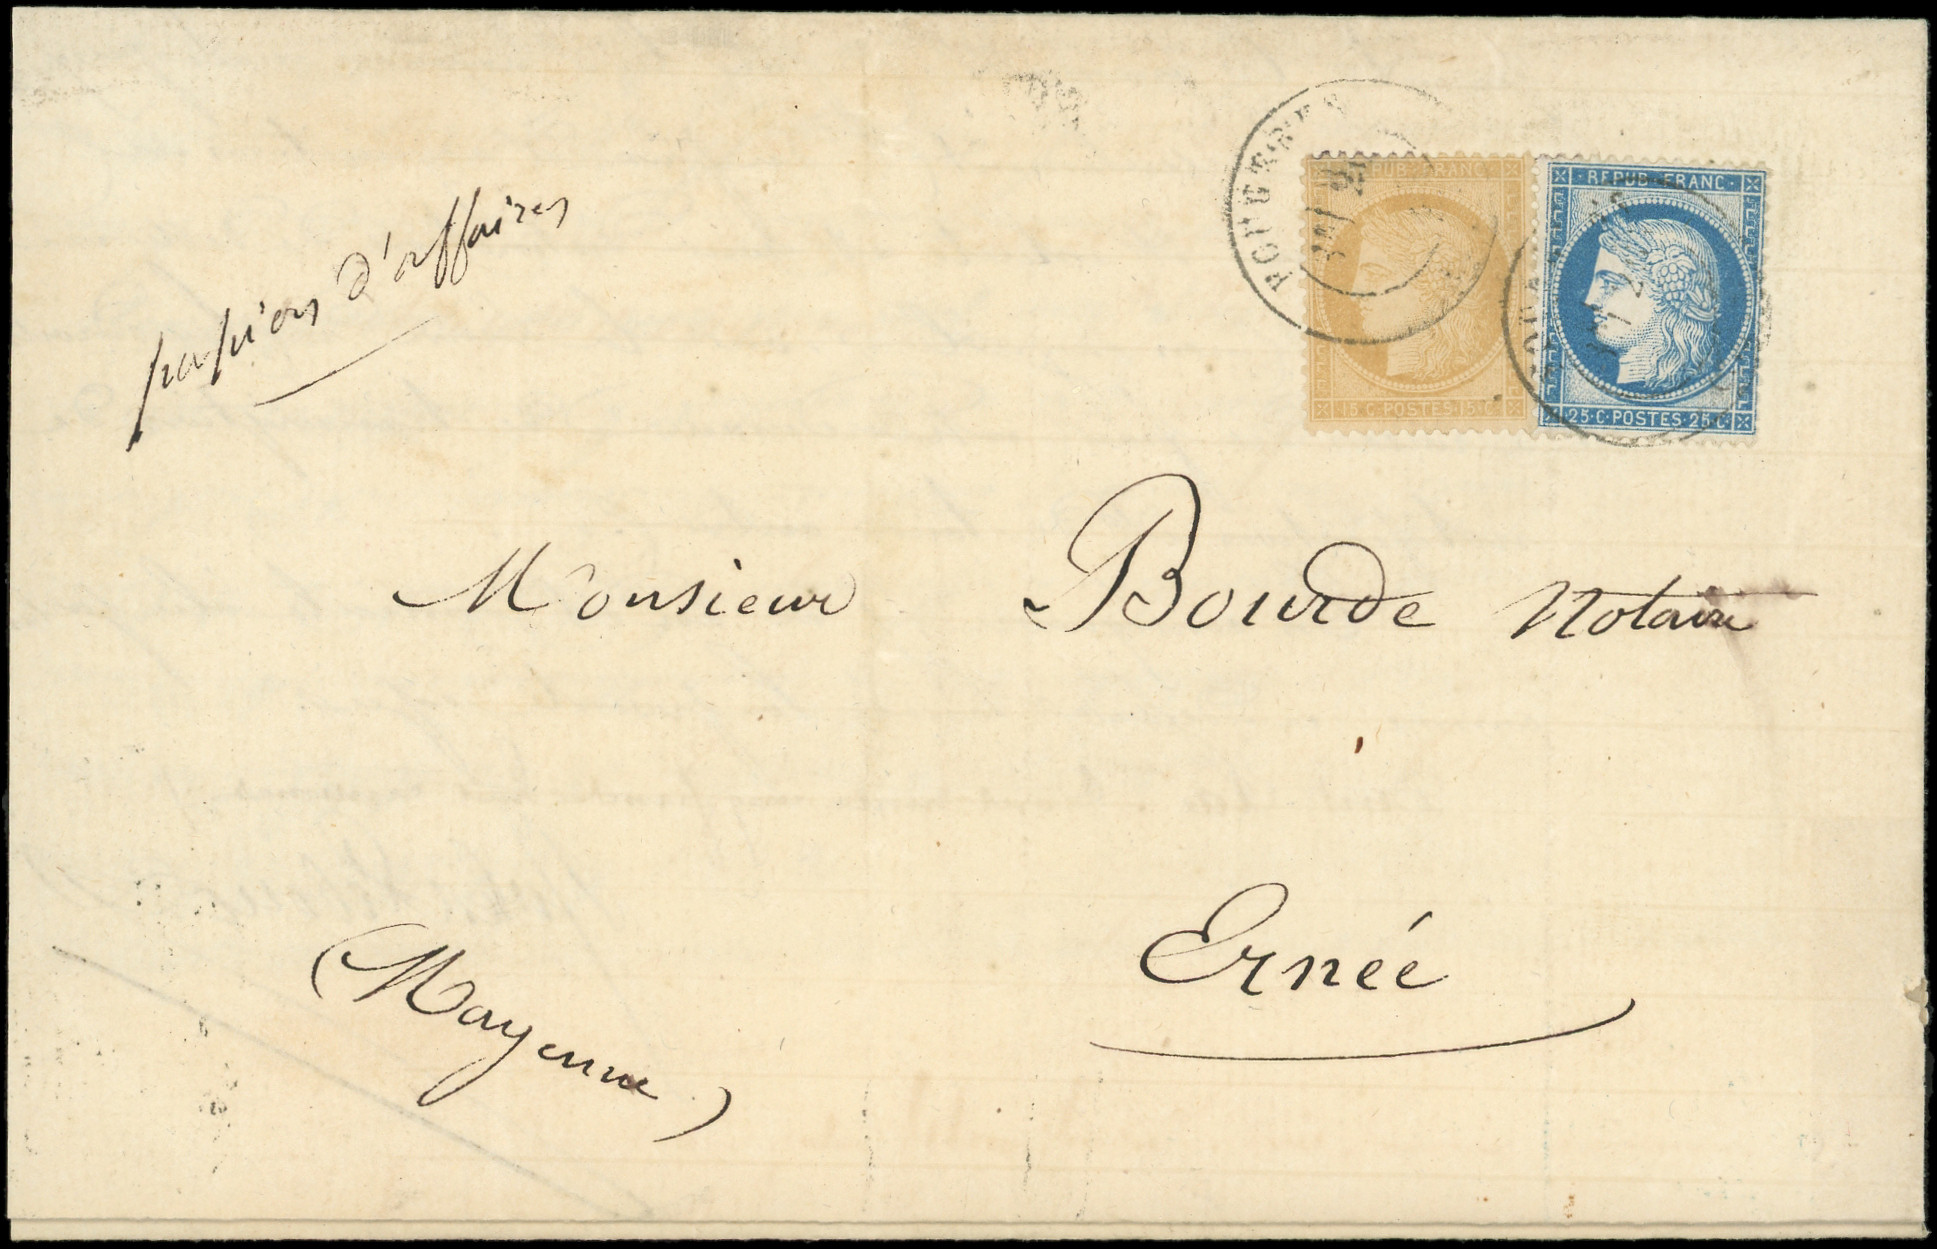 FOUGERES
REPUB·FRANC·
15·C·POSTES·15·C·
REPUB·FRANC·
25·C·POSTES·25·C·
papiers d'affaires
Monsieur Bourde Notaire
Ernée
(Mayenne)